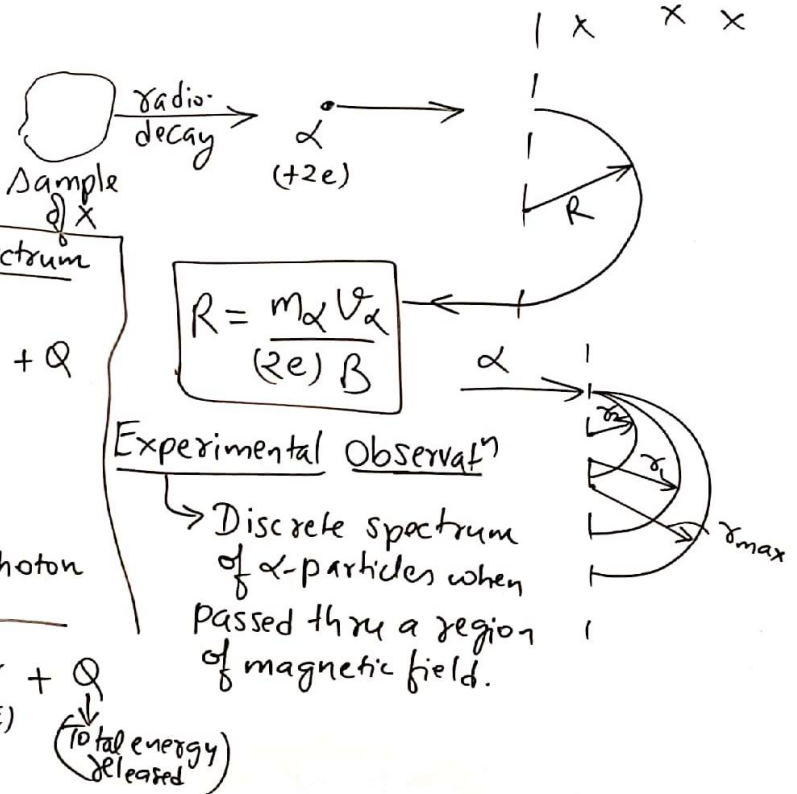 x x x
radio-
decay
α
(+2e)
R
Sample
of X
ctrum
R = mα vα
(2e) B
+ Q
α
Experimental Observatⁿ
r₂
r₁
rmax
Discrete spectrum
of α-particles when
passed thru a region
of magnetic field.
hoton
+ Q
)
(Total energy
released)